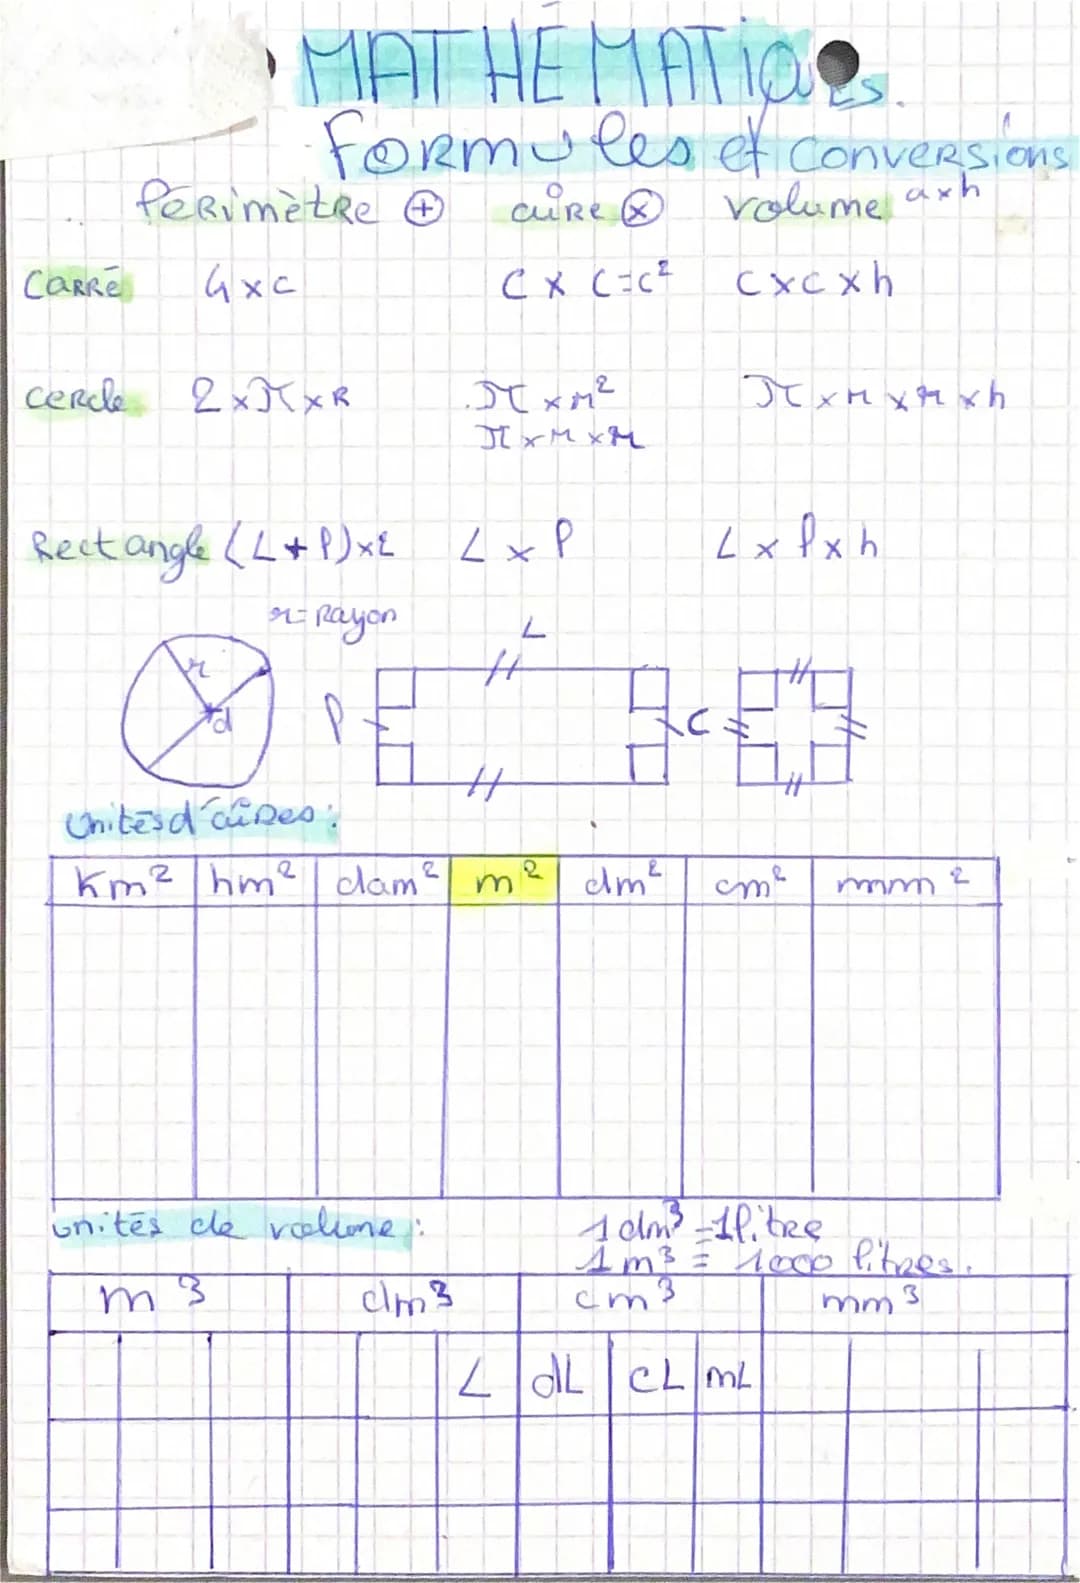 MATHEMATIQUES.
Formules et conversions
Périmètre + aire × volume a×h
Carré 4×c c×c=c² c×c×h
cercle 2×π×R π×r² π×r×r×h
π×r×r
Rectangle (L+l)×2 L×l L×l×h
r=Rayon
L
r
d
l
c
Unités d'aires:
Km² hm² dam² m² dm² cm² mm²
Unités de volume: 1dm³=1litre
1m³ = 1000 litres.
m³ dm³ cm³ mm³
L dL cL mL